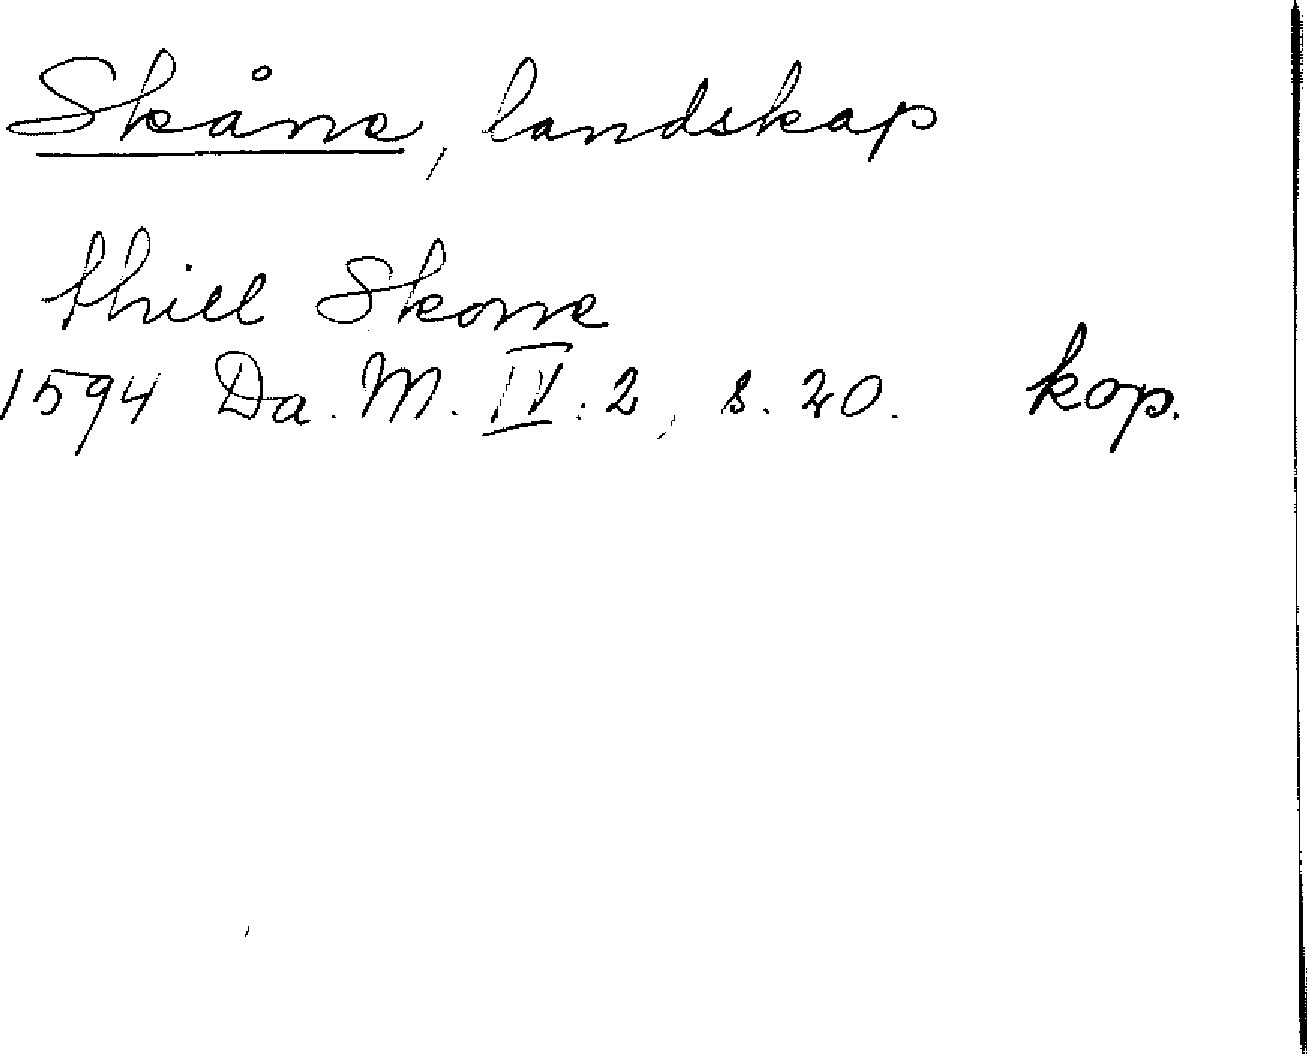 Skåne, landskap
thill Skone
1594 Da. M. IV: 2, s. 20. kop.